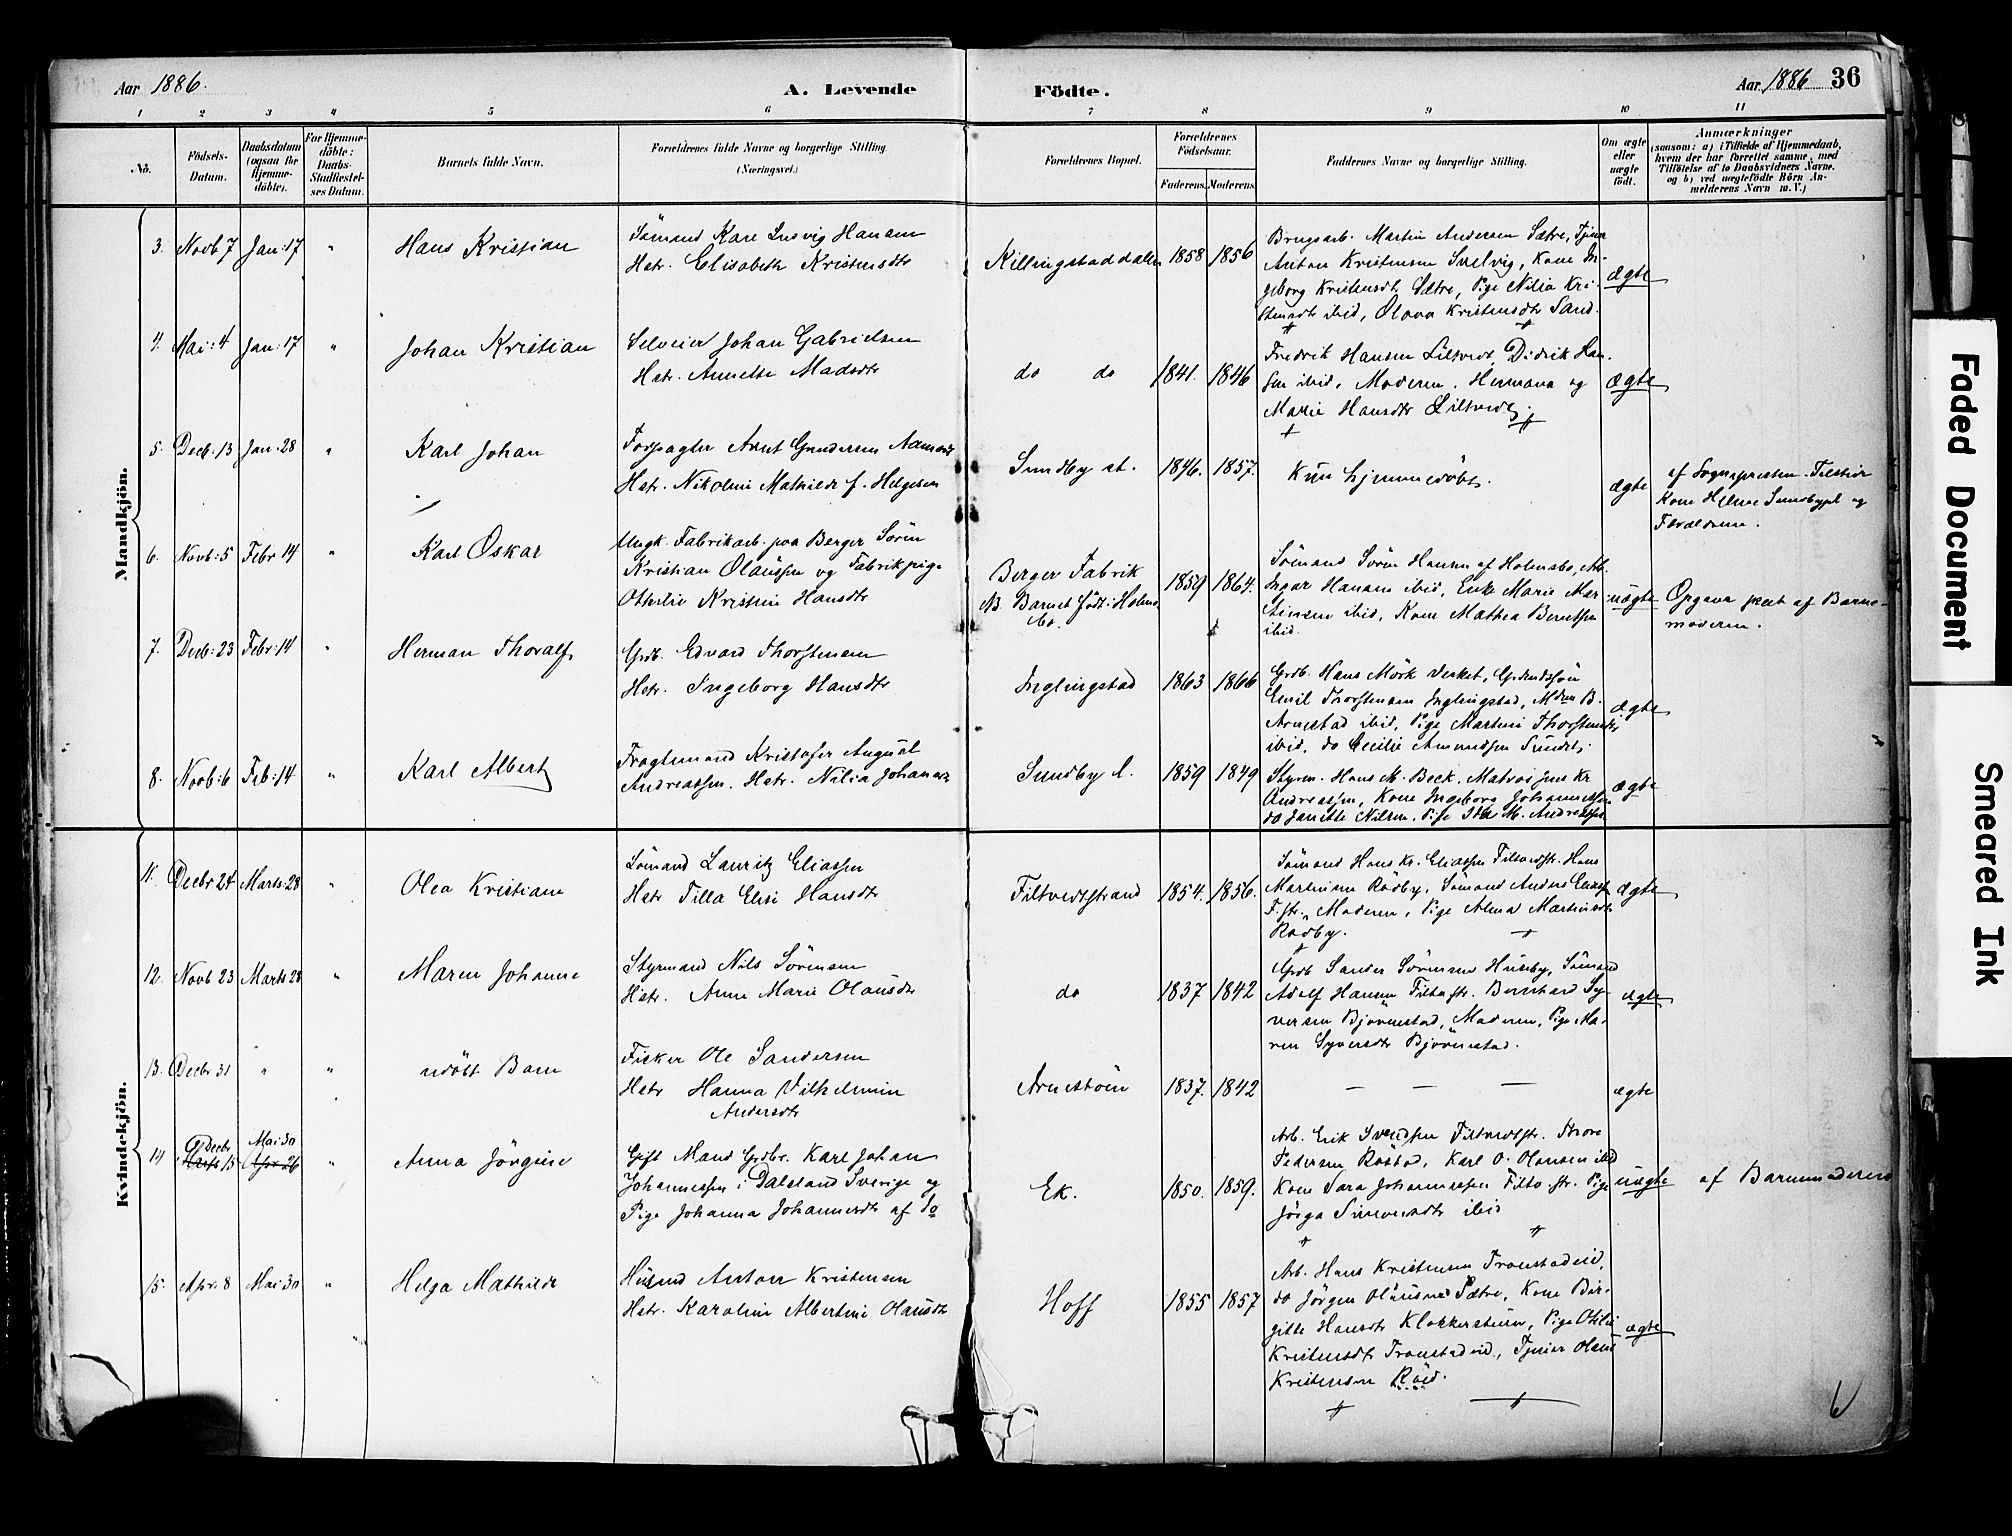 Aar 1886. A. Levende Födte. Aar 1886 36
1 2 3 4 5 6 7 8 9 10 11
No.
Födsels-Datum.
Daabsdatum (ogsaa for Hjemme-döbte).
For Hjemme-döbte: Daabs-Stadfæstel-ses Datum.
Barnets fulde Navn.
Forældrenes fulde Navne og borgerlige Stilling. (Næringsvei.)
Forældrenes Bopæl.
Forældrenes Födselsaar.
Faderens. Moderens.
Faddernes Navne og borgerlige Stilling.
Om ægte eller uægte født.
Anmærkninger
(saasom: a) i Tilfælde af Hjemmedaab,
hvem der har forrettet samme, med
Tilføielse af to Daabsvidners Navne,
og b) ved uægtefödte Börn An-
melderens Navn m. V.)
Mandkjön.
3. Novb 7 Jan: 17 " Hans Kristian
Sömand Kare Ludvig Hansen
Hstr. Elisabeth Kristensdtr
Killingstaddalen 1858 1856
Brugsarb. Martin Andersen Sætre, Tjener
Anton Kristensen Svelvig, Kone In-
geborg Kristensdtr Sætre, Pige Nilia Kri-
stensdtr ibid, Olava Kristensdtr Sand.
ægte
4. Mai: 4 Jan: 17 " Johan Kristian
Selveier Johan Gabrielsen
Hstr. Annette Madsdtr
do do 1841. 1846
Fredrik Hansen Liltvedt, Didrik Han-
sen ibid, Moderen, Hermana og
Marie Hansdtr Liltvedt.
ægte
5. Decb: 13 Jan: 28 " Karl Johan
Forpagter Arnt Gundersen
Hstr. Nikoline Mathilde f. Helgesen
Sundby st. 1846. 1857.
Kun hjemmedöbt.
ægte
af Sognepresten
Kone Helene Sundbypl og
Forældrene.
6. Novb: 5 Febr 14 " Karl Oskar
Ungk. Fabrikarb. paa Berger Sören
Kristian Olaussen og Fabrikpige
Othelie Kristine Hansdtr
Berger Fabrik
NB. Barnet född i Holms-
bo.
1859 1864.
Sömand Sören Hansen af Holmsbo, Arb.
Ingar Hansen ibid, Enke Marie Mar-
tinsen ibid, Kone Mathea Berntsen
ibid.
uægte
Opgave præt af Barne-
moderen.
7. Decb: 23 Febr: 14 " Herman Thoralf
Grdb. Edvard Thorstensen
Hstr. Ingeborg Hansdtr
Inglingstad 1863 1866
Grdb. Hans Mörk Verket, Grdmdssön
Emil Thorstensen Inglingstad, Mdm B.
Arnestad ibid, Pige Martine Thorstensdtr
ibid, do Cecilie Amundsen Sundet.
ægte
8. Novb: 6 Feb: 14. " Karl Albert
Fragtemand Kristofer August
Andreassen. Hstr. Nilia Johannes
Sundby 1859 1849
Styrm. Hans M. Beck. Matros Jens Kr
Andreassen, Kone Ingeborg Johannessen
do Janette Nilsen, Pige Ida M. Andreassen
ægte
Kvindekjön.
11. Decbr 24 Marts: 28 " Olea Kristiane
Sömand Lauritz Eliassen
Hstr Tilla Elise Hansdtr
Filtvedtstrand 1854. 1856.
Sömand Hans Kr. Eliassen Filtvedtstr. Hans
Martinsen Rödby, Sömand Anders Eliassen
F.str., Moderen, Pige Alma Martinsdtr
Rödby.
ægte
12. Novb 23 Marts 28 " Maren Johanne
Styrmand Nils Sörensen
Hstr. Anne Marie Olausdtr
do 1837 1842
Grdb Sander Sörensen Huseby, Sömand
Adolf Hansen Filtvstr. Bernhard Sy-
versen Björnestad, Moderen, Pige Ma-
ren Syversdtr Björnestad.
ægte
13. Decbr 31 " " udöbt Barn
Fisker Ole Sandersen
Hstr Hanna Vilhelmine
Andersdtr
Arnestöen 1837. 1842 — — — ægte
14 Decbr Marts 15 Mai 30 Apr 26 " Anna Jörgine
Gift Mand Grdbr. Karl Johan
Johannessen i Dalsland Sverige og
Pige Johanna Johannesdtr af do
Ek. 1850. 1859.
Arb. Erik Svendsen Filtvedtstr. Thore
Pedersen Röstad, Karl O. Olausen ibid
Kone Sara Johannessen Filtv.str. Pige
Jörga Simensdtr ibid
uægte
af Barnemoderen
15. Apr. 8 Mai 30 " Helga Mathilde
Husmd Anton Kristensen
Hstr. Karoline Albertine Olausdtr
Hoff 1855 1857
Arb. Hans Kristensen Tronstadeid,
do Jörgen Olausen Sætre, Kone Bir-
gitte Hansdtr Klokkerstuen, Pige Otilie
Kristensdtr Tronstadeid, Tjener Olaus
Kristensen Röed.
ægte
Faded Document
Smeared Ink